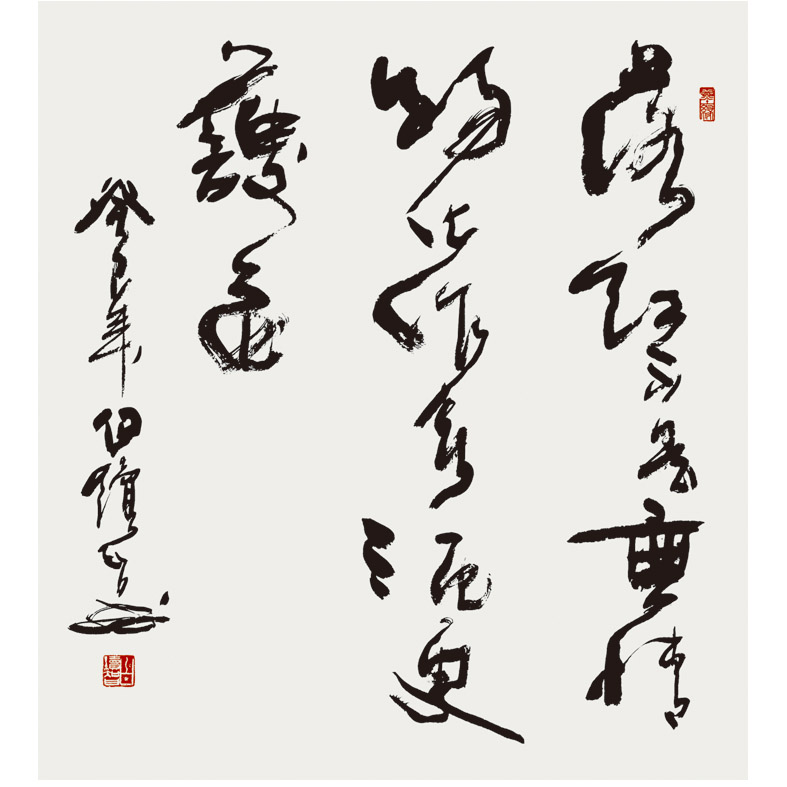 落紅不是無情
物化作春泥更
護花
癸巳年伯